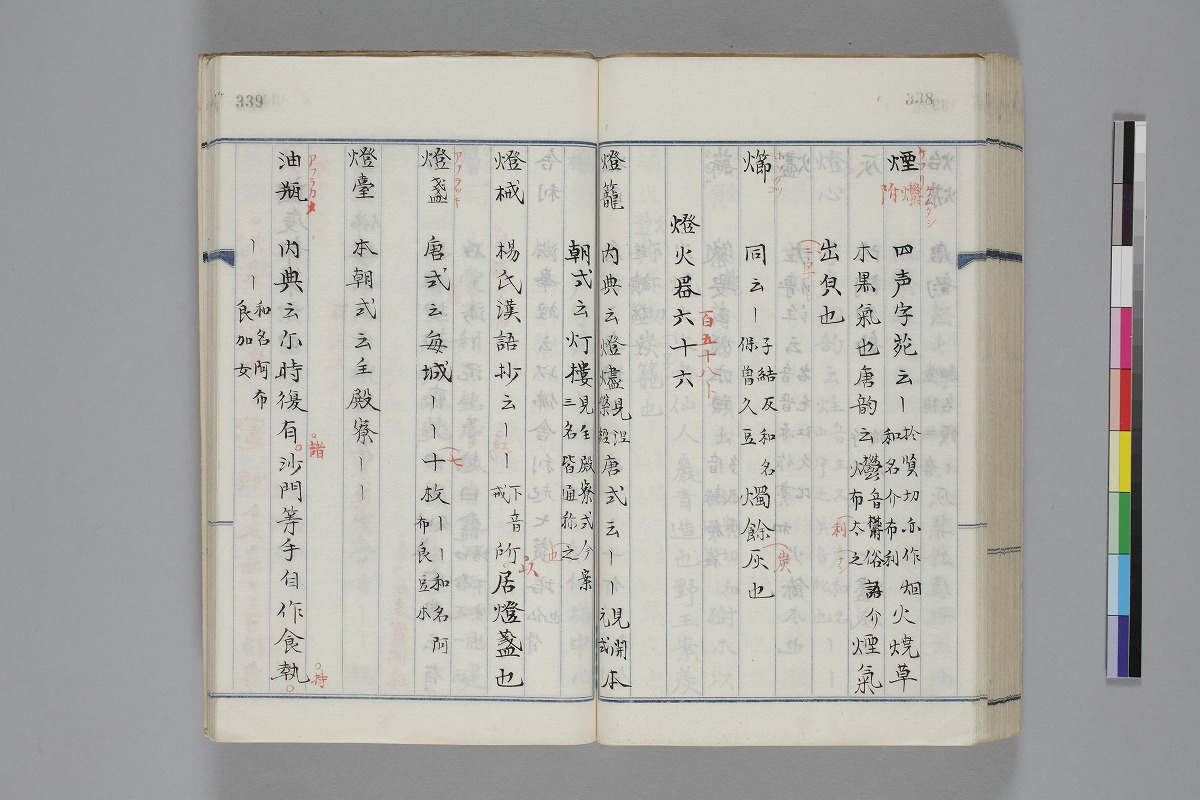 338
煙 四声字苑云ー於賢切亦作烟和名介布利火焼草
木黒氣也唐韵云㷉音欝俗語介布太之火煙氣
出皃也
㸅 同云ー子結反和名保曽久豆燭餘灰也
燈火器六十六
百五十八ー
燈籠 内典云燈爐見涅槃経唐式云ーー見開元式本
朝式云灯楼見主殿寮式今案三名皆通称之
燈械 楊氏漢語抄云ーー下音戒所居燈盞也
燈盞 唐式云毎城ー十枚ーー和名阿布良豆木
アフラツキ
七
燈臺 本朝式云主殿寮ーー
油瓶 内典云尓時復有沙門等手自作食執
諸
持
ーー和名阿布良加女
339